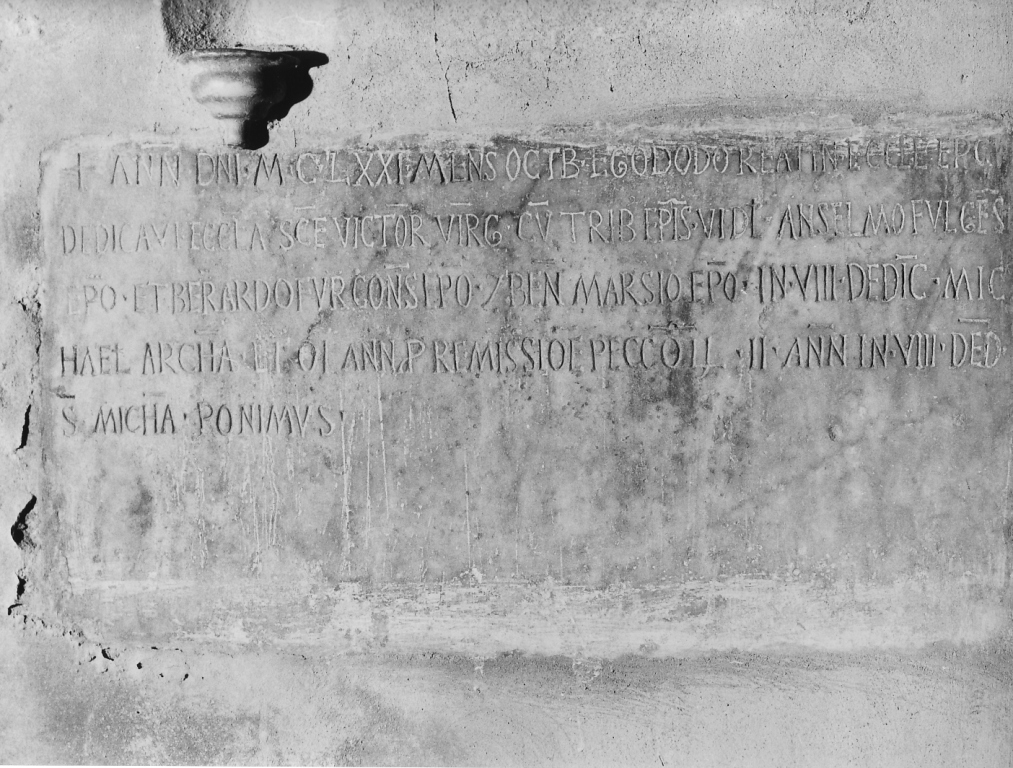 + ANN DNI·M·C·LXXI·MENS OCTB·EGO DODO REATIN ECCLE EPC
DEDICAVI ECCLA SCE VICTOR VIRG·CV TRIB EPIS·VIDL·ANSELMO FVLGES
EPO·ET BERARDO FVRCONSI EPO·7 BEN MARSIO EPO·IN·VIII·DEDIC·MIC
HAEL ARCHA·ET OI ANN P REMISSIOE PECCO IL·II·ANN IN·VIII·DED
S MICHA·PONIMVS·